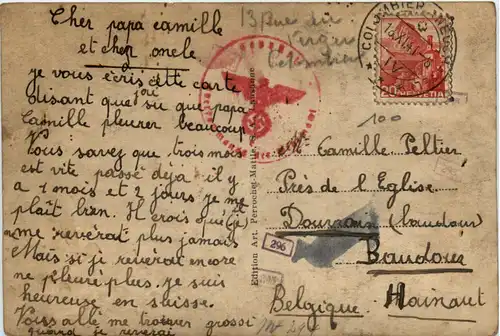 Cher papa camille
et cher oncle
je vous écris cette carte
disant que j'ai su que papa
Camille pleurer beaucoup
Vous savez que trois mois
est vite passé deja il y
a 1 mois et 2 jours je me
plait bien. Il crois qué (je)
me reverat plus jamais
Mais si je reverai encore
ne pleuré plus. je suis
heureuse en suisse.
Vous allé me trouver grossi
quand je reverai
13 Rue du
Verger
Colombier
COLOMBIER
HELVETIA
20
100
Camille Peltier
Près de l'Eglise
Dourann (baudour
Baudour
Belgique. Hainaut
Edition Art. Perrochet-Matile
296